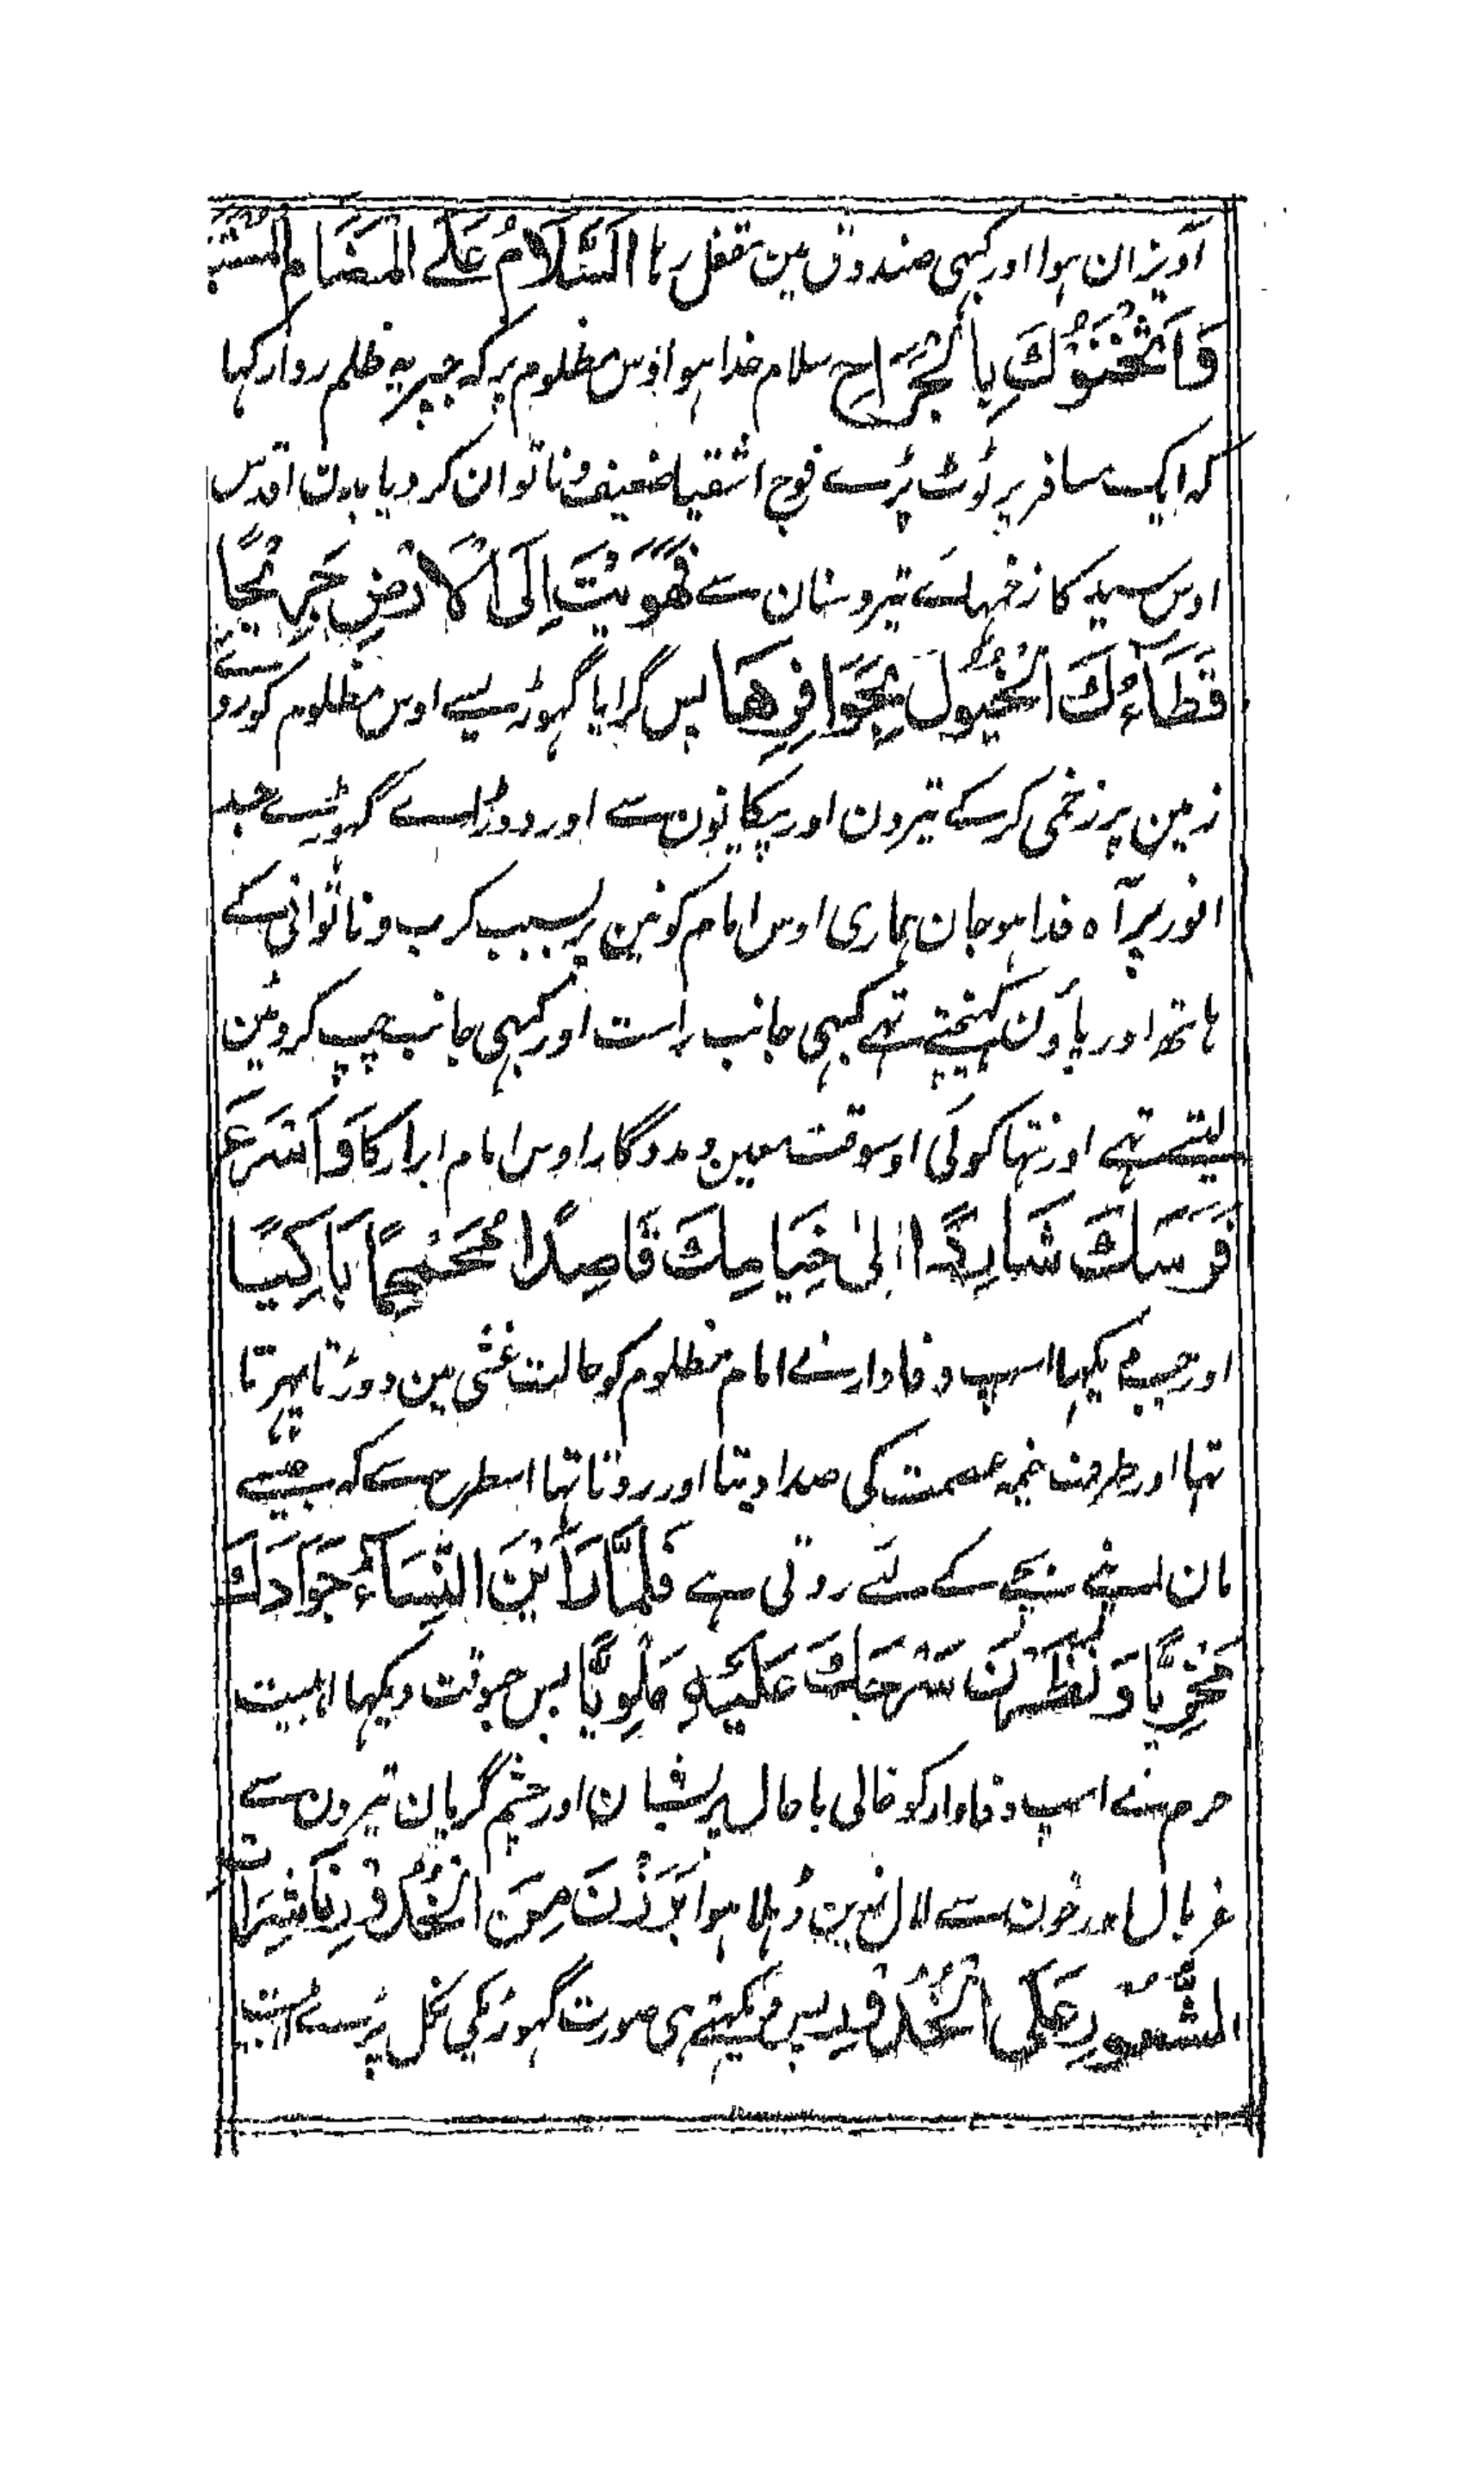 آویزان ہوا اور کبہی صندوق مین مقفل رہا اَلسَّلَامُ عَلَے الْمُضَامِ الْمُسْتَبَ
وَاَثْخَنُوْكَ بِالْجِرَاحِ سلام خدا ہو اوس مظلوم پر کہ جسپر یہ ظلم روا رکہا
کہ ایک مسافر پر ٹوٹ پڑے فوج اشقیا ضعیف و ناتوان کر دیا بدن اقدس
اوس سید کا زخمہائے تیر و سنان سے فَهَوَيْتَ اِلَى الْاَرْضِ جَرِيْحًا
تَطَاءُكَ الْخُيُوْلُ بِحَوَافِرِهَا پس گرایا گہوڑیسے اوس مظلوم کو روے
زمین پر زخمی کرکے تیرون اور پیکانون سے اور دوڑائے گہوڑے جسد
انور پر آہ فدا ہو جان ہماری اوس امام کونین پر بسبب کرب و ناتوانی کے
ہاتھ اور پاؤن کہینچتے تہے کبہی جانب راست اور کبہی جانب چپ کروٹین
لیتے تہے اور نتہا کوئی اوسوقت معین و مددگار اوس امام ابرار کا وَاَسْرَعَ
فَرَسُكَ شَارِدًا اِلٰى خِيَامِكَ قَاصِدًا مُحَمْحِمًا بَاكِيًا
اور جب دیکہا اسپ وفادار نے امام مظلوم کو حالت غشی مین دوڑتا پہرتا
تہا اور طرف خیمہ عصمت کی صدا دیتا اور روتا تہا اسطرح سے کہ جیسے
مان اپنے بچے کے لئے روتی ہے فَلَمَّا رَاَيْنَ النِّسَاءُ جَوَادَكَ
مَخْزِيًّا وَنَظَرْنَ سَرْجَكَ عَلَيْهِ مَلْوِيًّا پس جسوقت دیکہا اہلبیت
حرم نے اسپ وفادار کو خالی با حال پریشان اور چشم گریان تیرون سے
غربال اور خون سے لال زین ڈہلا ہوا بَرَزْنَ مِنَ الْخُدُوْرِ نَاشِرَاتِ
الشُّعُوْرِ عَلَى الْخُدُوْدِ پس دیکہتے ہی صورت گہوڑیکی نکل پڑے